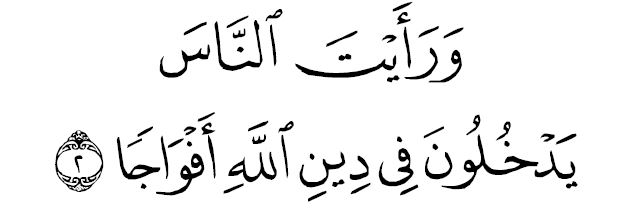 وَرَأَيْتَ ٱلنَّاسَ
يَدْخُلُونَ فِى دِينِ ٱللَّهِ أَفْوَاجًا ٢